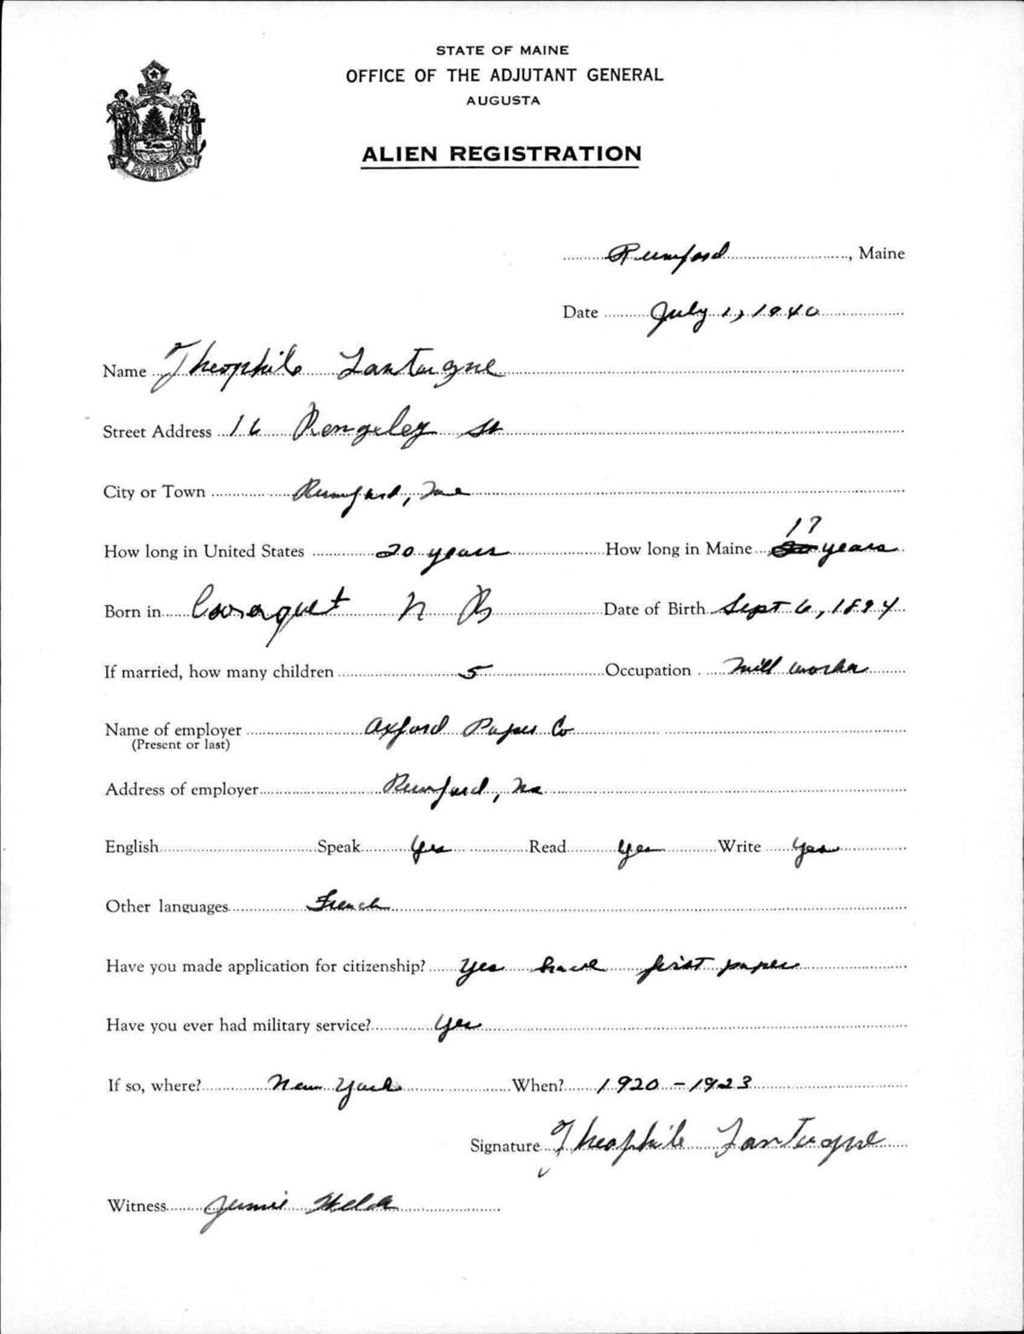 STATE OF MAINE
OFFICE OF THE ADJUTANT GENERAL
AUGUSTA
ALIEN REGISTRATION
Rumford, Maine
Date July 1, 1940
Name Theophile Lantaigne
Street Address 16 Rangeley St
City or Town Rumford, Me
How long in United States 20 years How long in Maine 17 years
Born in Caraquet N B Date of Birth Sept 6, 1894
If married, how many children 5 Occupation Mill worker
Name of employer Oxford Paper Co
(Present or last)
Address of employer Rumford, Me
English Speak Yes Read Yes Write Yes
Other languages French
Have you made application for citizenship? Yes have first paper
Have you ever had military service? Yes
If so, where? New York When? 1920-1923
Signature Theophile Lantaigne
Witness